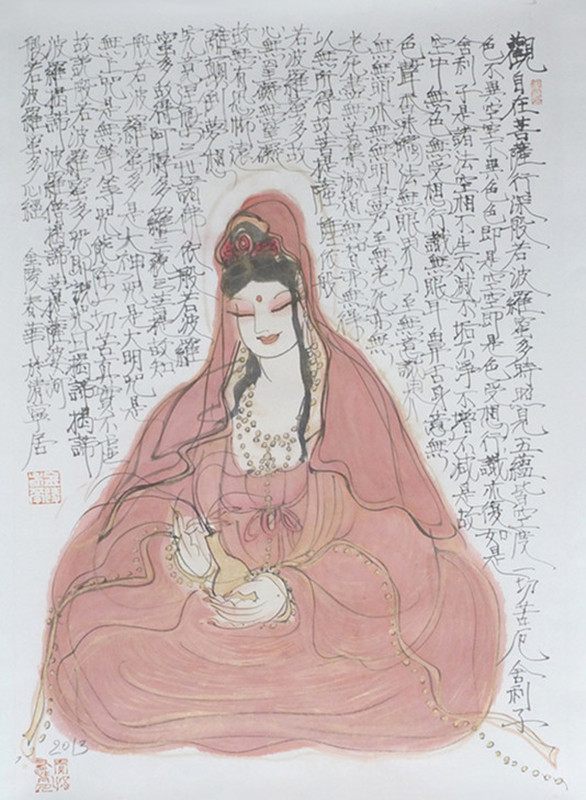 觀自在菩薩行深般若波羅蜜多時照見五蘊皆空度一切苦厄舍利子
色不異空空不異色色即是空空即是色受想行識亦復如是
舍利子是諸法空相不生不滅不垢不淨不增不減是故
空中無色無受想行識無眼耳鼻舌身意無
色聲香味觸法無眼界乃至無意識界
無無明亦無無明盡乃至無老死亦無
老死盡無苦集滅道無智亦無得
以無所得故菩提薩埵依般
若波羅蜜多故
心無罣礙無罣礙
故無有恐怖遠
離顛倒夢想
究竟涅槃三世諸佛依般若波羅
蜜多故得阿耨多羅三藐三菩提故知
般若波羅蜜多是大神咒是大明咒是
無上咒是無等等咒能除一切苦真實不虛
故說般若波羅蜜多咒即說咒曰揭諦揭諦
波羅揭諦波羅僧揭諦菩提薩婆訶
般若波羅蜜多心經 金陵春華於清寧居
2013